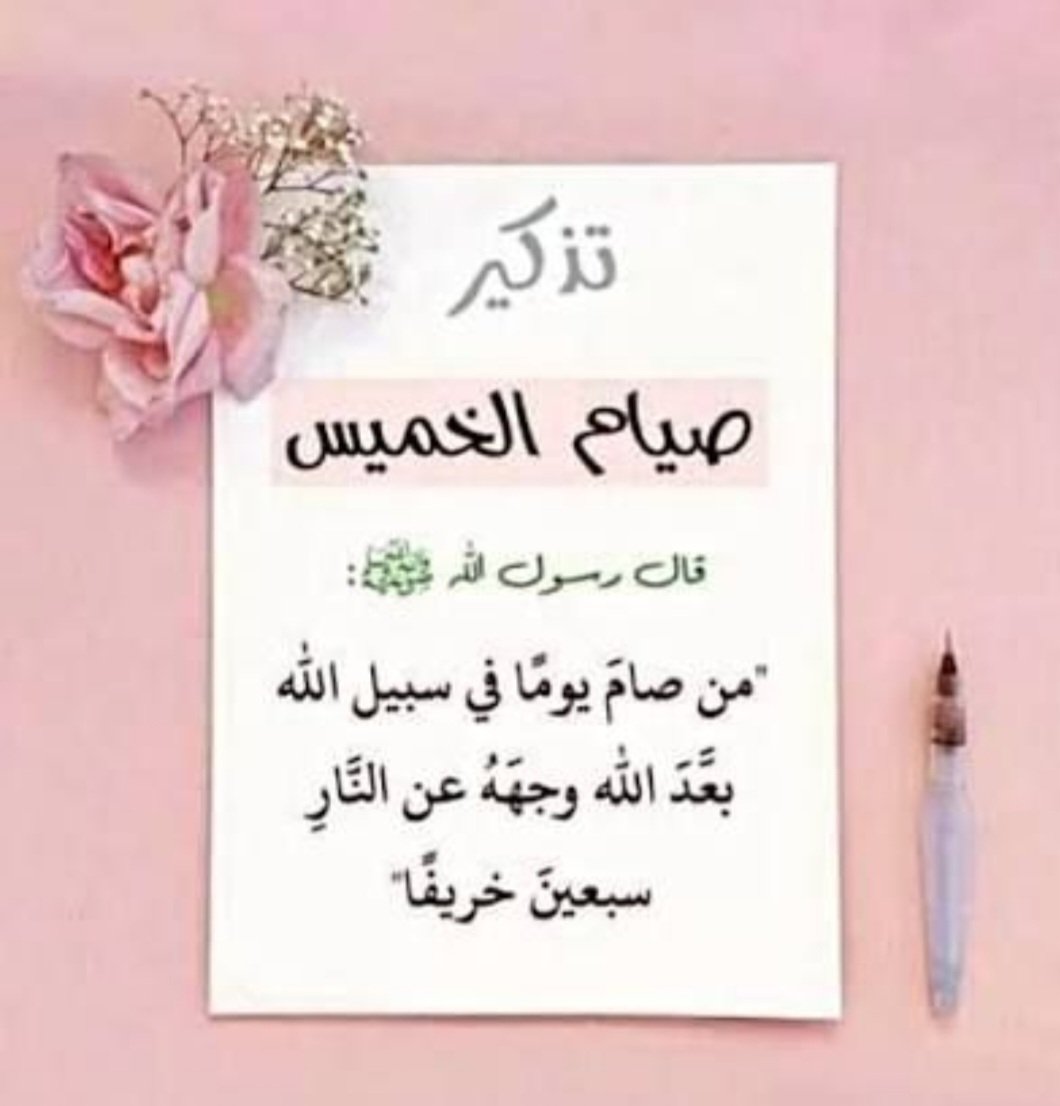 تذكير
صيام الخميس
قال رسول الله ﷺ:
"من صامَ يومًا في سبيل الله
بعَّدَ الله وجهَهُ عن النَّارِ
سبعينَ خريفًا"